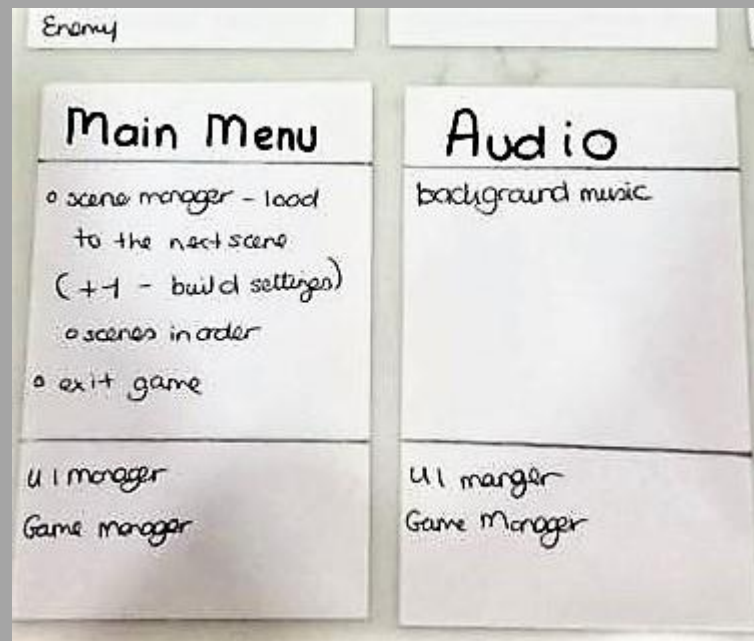 Enemy
Main Menu
o scene manager - load
to the next scene
(+1 - build settings)
o scenes in order
o exit game
UI manager
Game manager
Audio
background music
UI manger
Game Manager